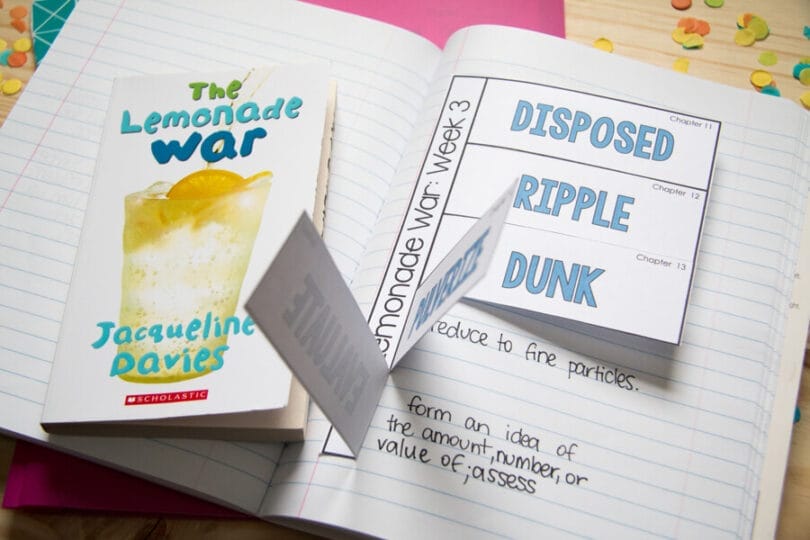 The
Lemonade
war
Jacqueline
Davies
SCHOLASTIC
Lemonade War: Week 3
Chapter 11
DISPOSED
Chapter 12
RIPPLE
Chapter 13
DUNK
PULVERIZE
reduce to fine particles.
form an idea of
the amount, number, or
value of; assess